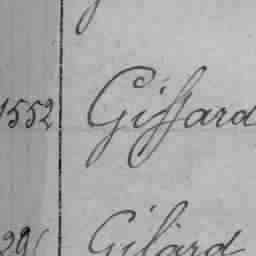 1552 Giffard
Gilard